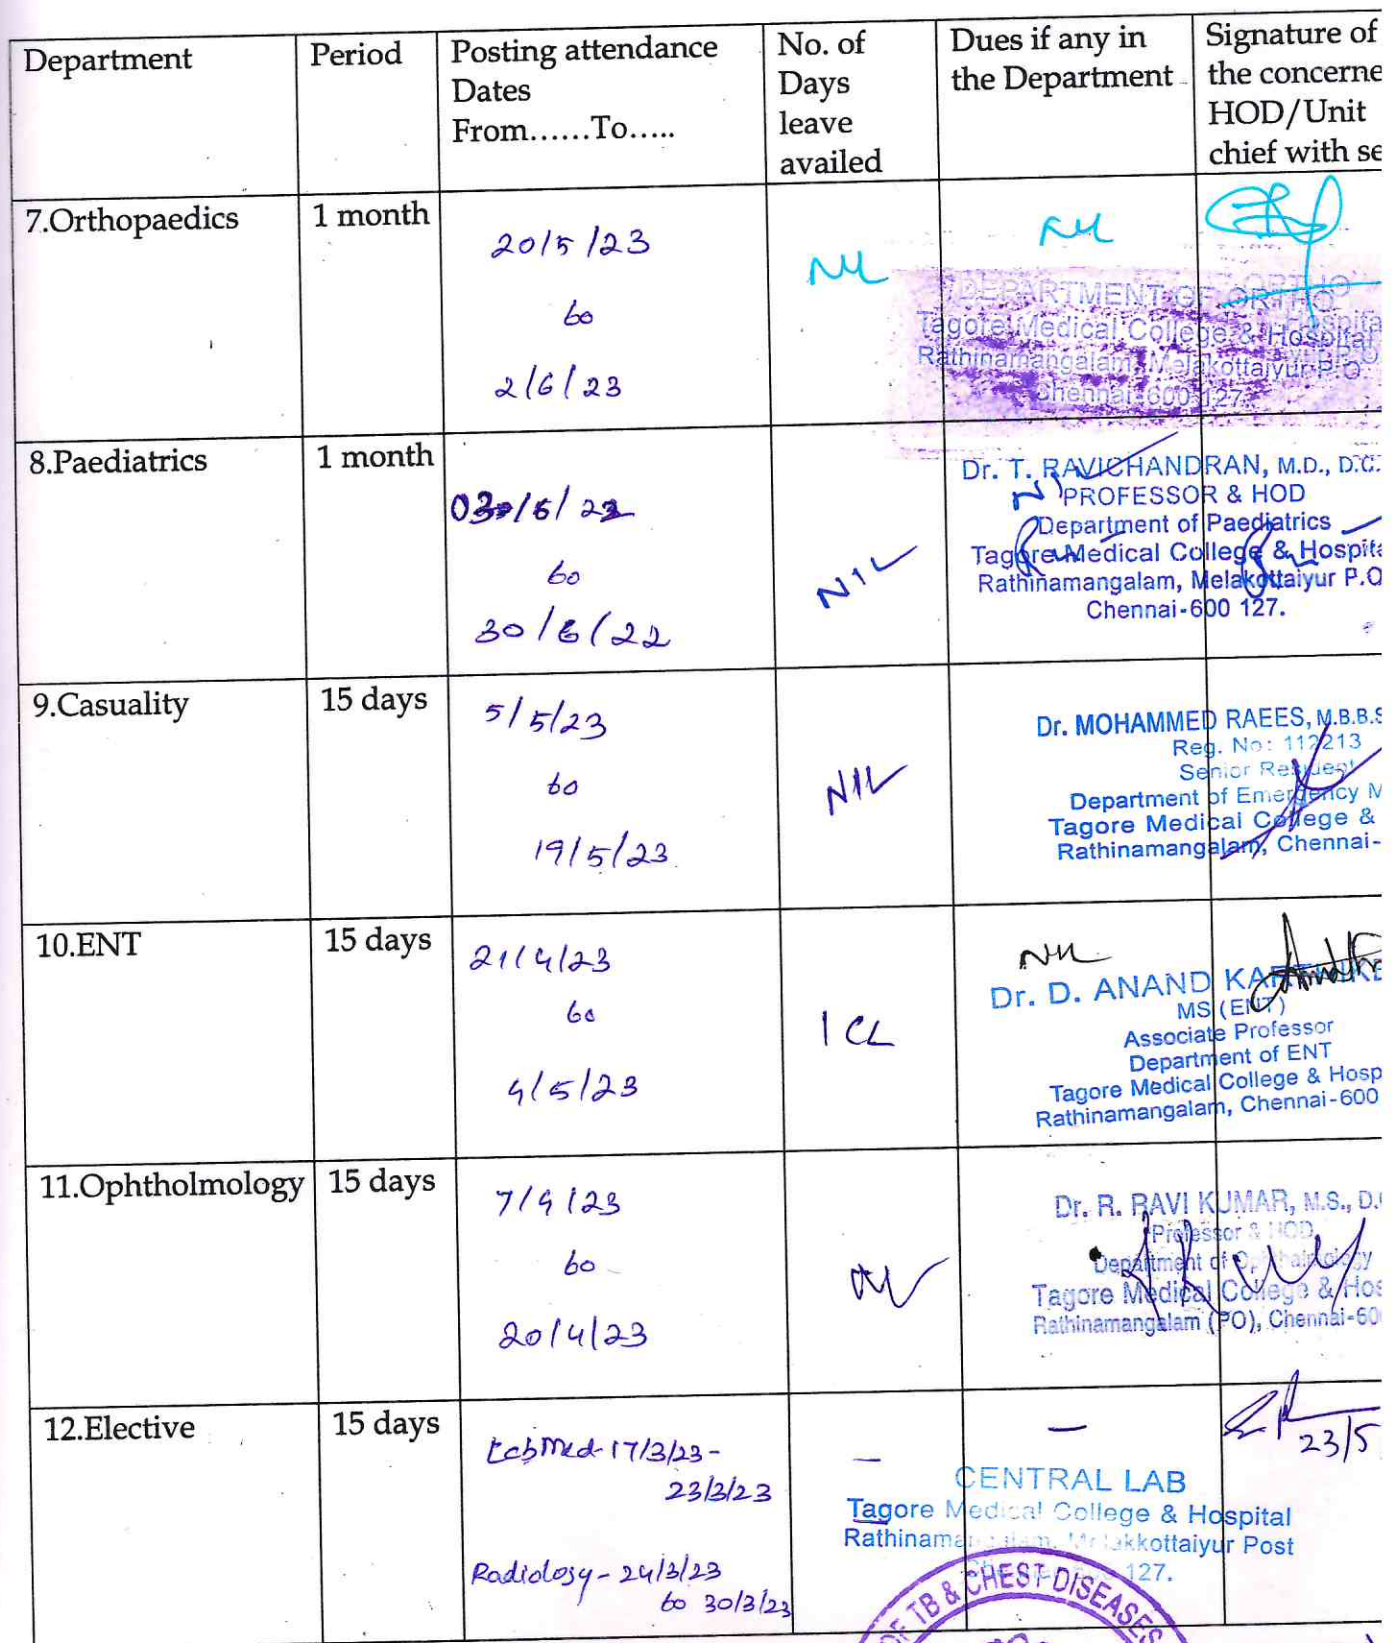 Department
Period
Posting attendance
Dates
From......To.....
No. of
Days
leave
availed
Dues if any in
the Department
Signature of
the concerne
HOD/Unit
chief with se
7.Orthopaedics
1 month
20/5/23
to
2/6/23
Nil
Nil
DEPARTMENT OF ORTHO
Tagore Medical College & Hospital
Rathinamangalam, Melakottaiyur P.O
Chennai-600 127.
8.Paediatrics
1 month
to
30/6/22
NIL
Dr. T. RAVICHANDRAN, M.D., D.C.
PROFESSOR & HOD
Department of Paediatrics
Tagore Medical College & Hospita
Rathinamangalam, Melakottaiyur P.O
Chennai-600 127.
9.Casuality
15 days
5/5/23
to
19/5/23
NIL
Dr. MOHAMMED RAEES, M.B.B.S
Reg. No: 112213
Senior Resident
Department of Emergency M
Tagore Medical College &
Rathinamangalam, Chennai-
10.ENT
15 days
21/4/23
to
4/5/23
1 CL
Nil
Dr. D. ANAND
MS (ENT)
Associate Professor
Department of ENT
Tagore Medical College & Hosp
Rathinamangalam, Chennai-600
11.Ophtholmology
15 days
7/4/23
to
20/4/23
Dr. R. RAVI KUMAR, M.S., D.
Professor & HOD
Department of Ophthalmology
Tagore Medical College & Hos
Rathinamangalam (PO), Chennai-60
12.Elective
15 days
Lab Med-17/3/23-
23/3/23
Radiology - 24/3/23
to 30/3/23
—
—
23/5
CENTRAL LAB
Tagore Medical College & Hospital
Post
127.
OF TB & CHEST DISEASES